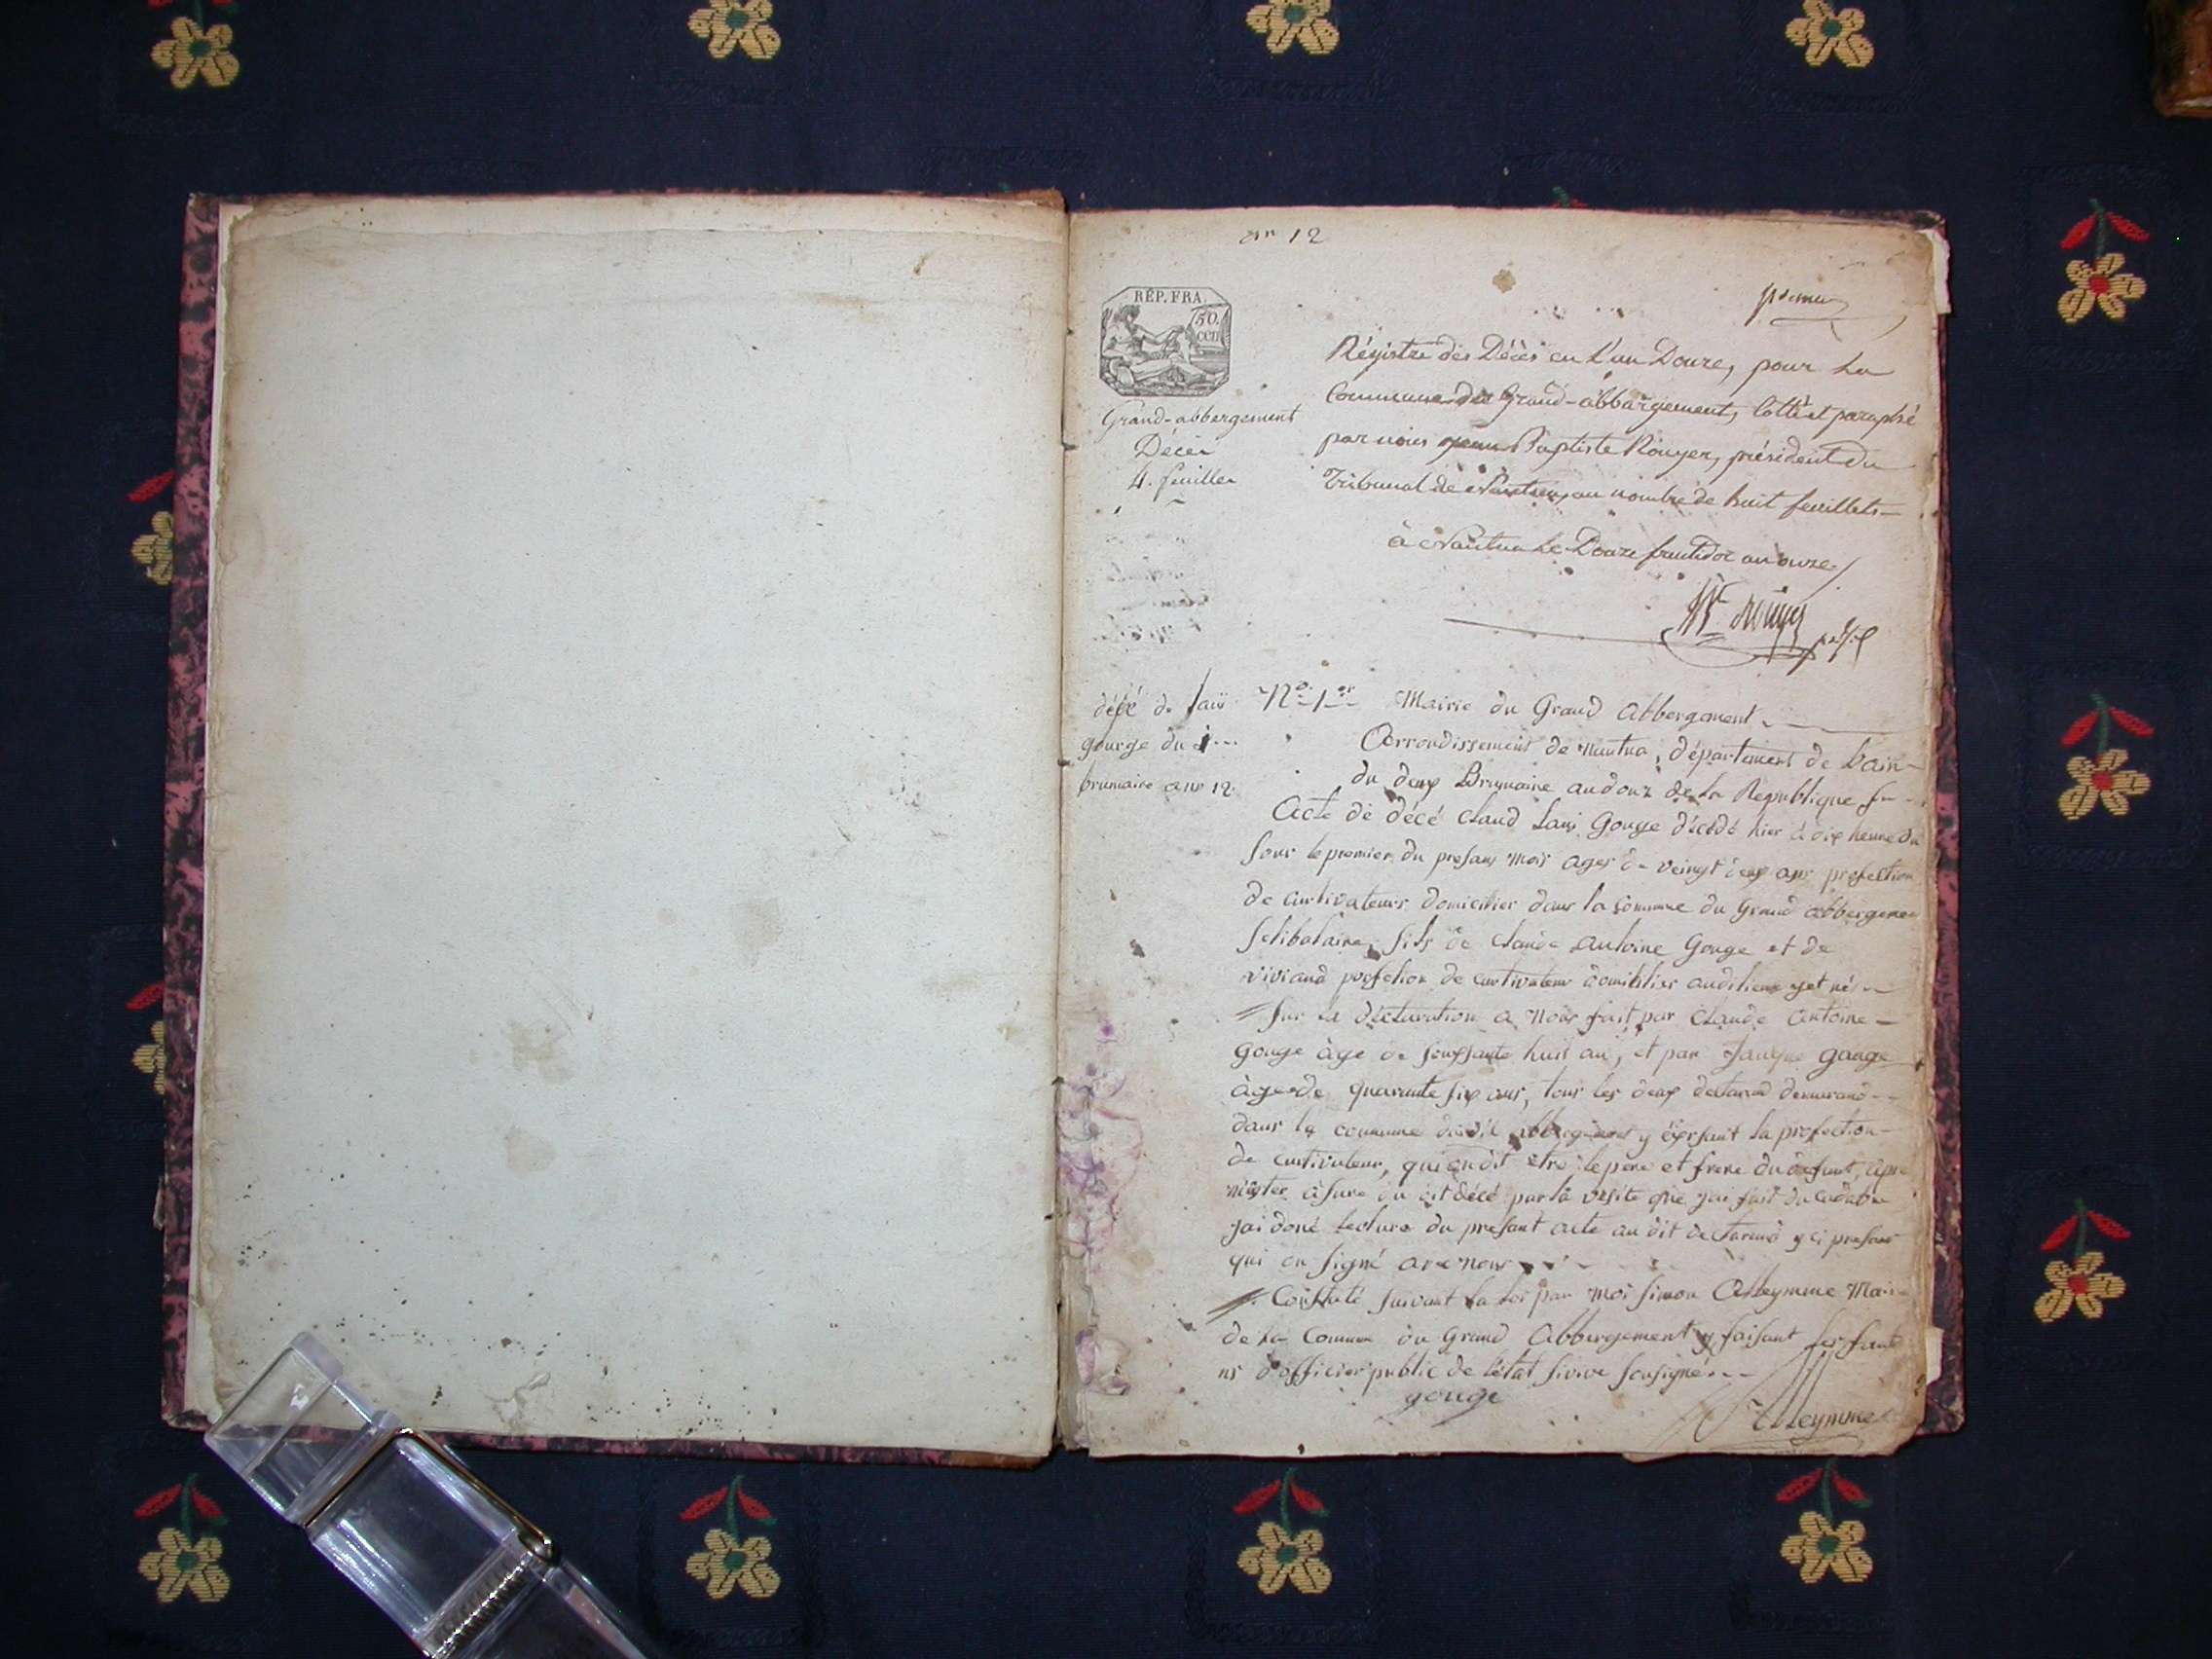 an 12
RÉP. FRA.
50.
cen
Grand-abbergement
Décès
4. feuilles
Régistre des Décès en L'an Douze, pour La
Commune du Grand-abbargement, Cotté et paraphé
par nous jean Baptiste Rouyer, président du
Tribunal de Nantua, au nombre de huit feuillets
à Nantua Le Douze fructidor an onze
Rouyer
décé de Laui
gouge du 1
brumaire an 12
No. 1er Mairie du Grand Abbergement
Arrondissement de nantua, département de Lain
du deux Brumaire an douz de La Republique f
Acte de décé Claud Laui Gouge décédé hier à dix heure du
soir le premier du presans mois ager de veingt deux ans profection
de curtivateurs domicilier dans la commune du Grand abbergemen
selibataire, fils de Claude Antoine Gouge et de
viviand profesion de curtivateur domicilier audilieux
Sur La déclaration a nous fait par Claude Antoine
Gouge àge de souxsante huit an, et par Jauque gouge
àge de quarante six ans, tous les deux declarand demurand
dans la commune dudit abbergement y éxersant la profection
de curtivateur, qui on dit etre le pere et frere du defunt,
màter àsure du dit décé par la visite que j'ai fait du cadabre
jai doné lecture du presant acte au dit declarand y ci presant
qui on signé avec nous
Constaté suivant La loi par moi Simon Alleymme Maire
de La Commune du Grand Abbergement y faisant les fonctio
ns d'officier public de létat sivive sousigné
gouge
Alleymme